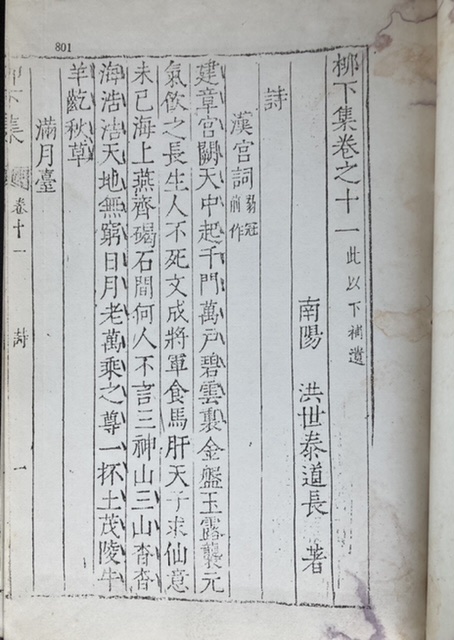 801
柳下集卷之十一 此以下補遺
南陽 洪世泰道長 著
詩
漢宮詞 弱冠前作
建章宮闕天中起千門萬戶碧雲裏金盤玉露襲元
氣飮之長生人不死文成將軍食馬肝天子求仙意
未已海上燕齊碣石間何人不言三神山三山杳杳
海浩浩天地無窮日月老萬乘之尊一抔土茂陵牛
羊齕秋草
滿月臺
柳下集 卷十一 詩 一